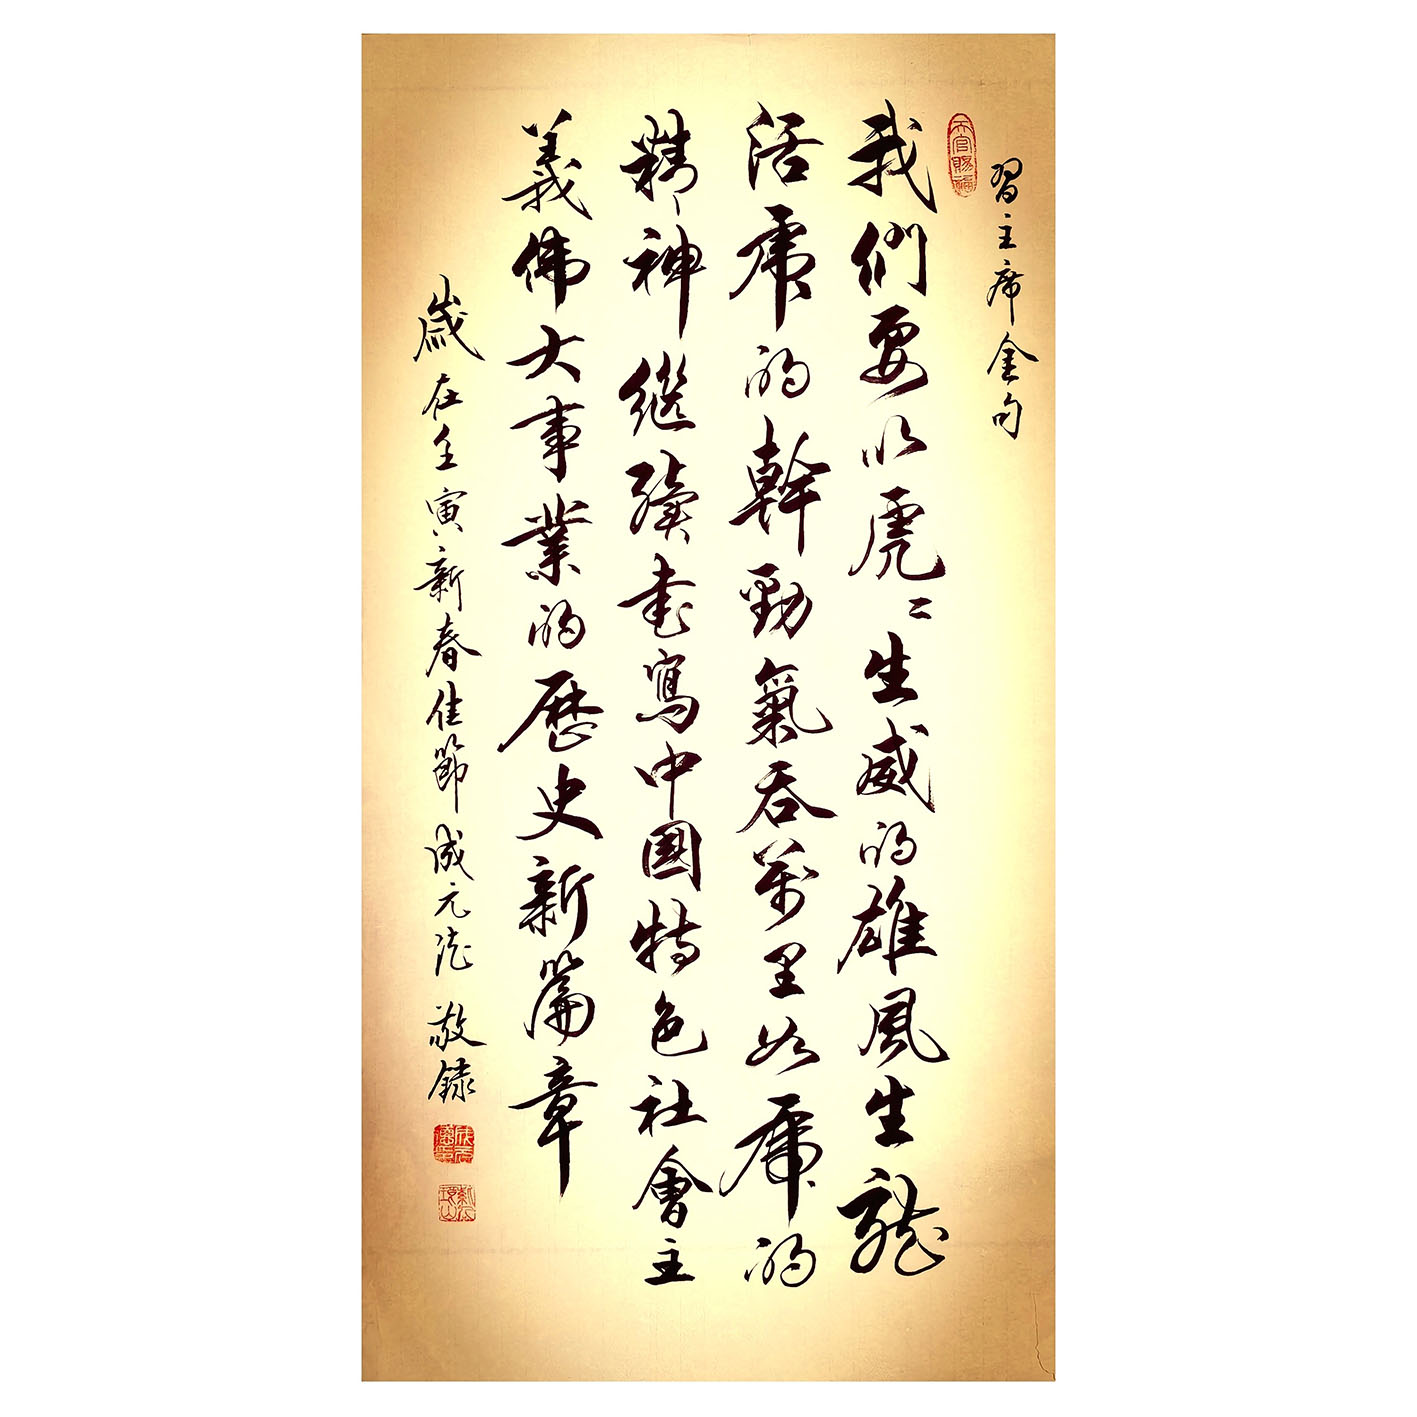 習主席金句
天官賜福
我們要以虎〻生威的雄風生龍
活虎的幹勁氣吞萬里如虎的
精神继續書寫中国特色社會主
義偉大事業的歷史新篇章
歲在壬寅新春佳節成元滗敬録